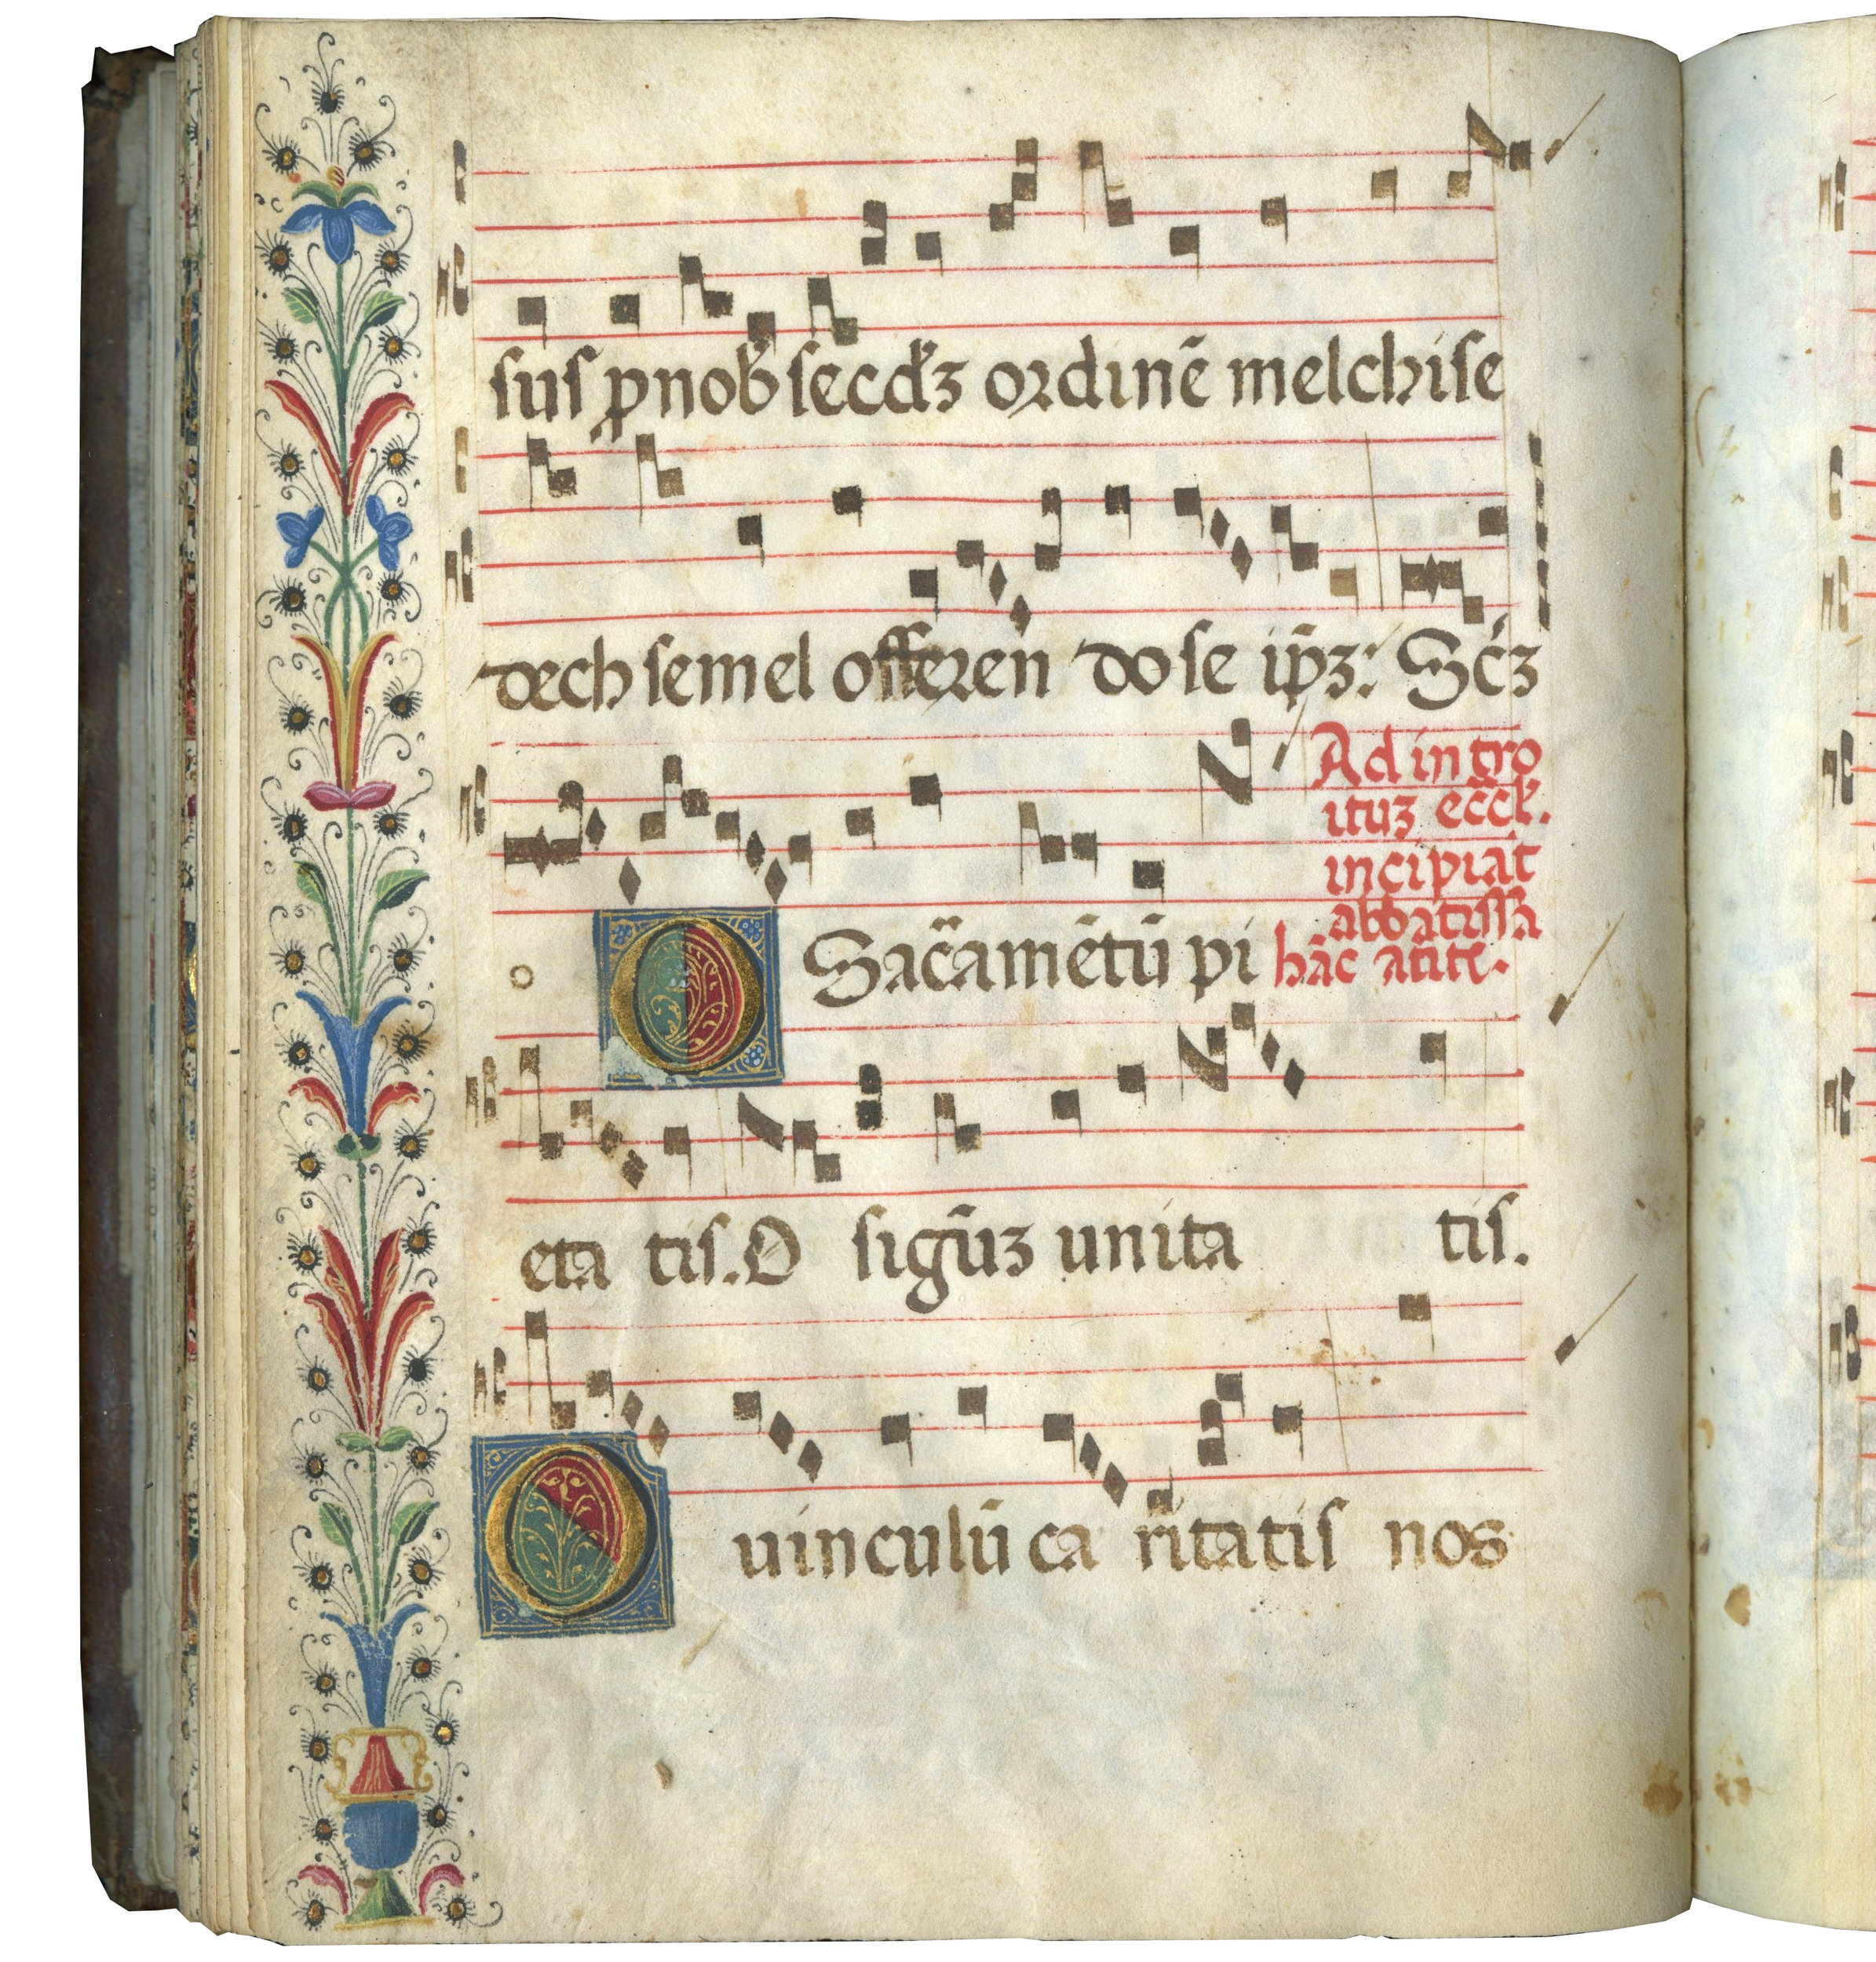 sus ꝓ nob̄ secd'ʒ ordinē melchise
dech semel offeren do se ip̄ʒ: Sc̄ʒ
Ad intro
ituʒ eccl'.
incipiāt
abbatissa
O Sac̄amētū pi hāc an̄te.
eta tis. O sigūʒ unita tis.
O uinculū ca ritatis nos